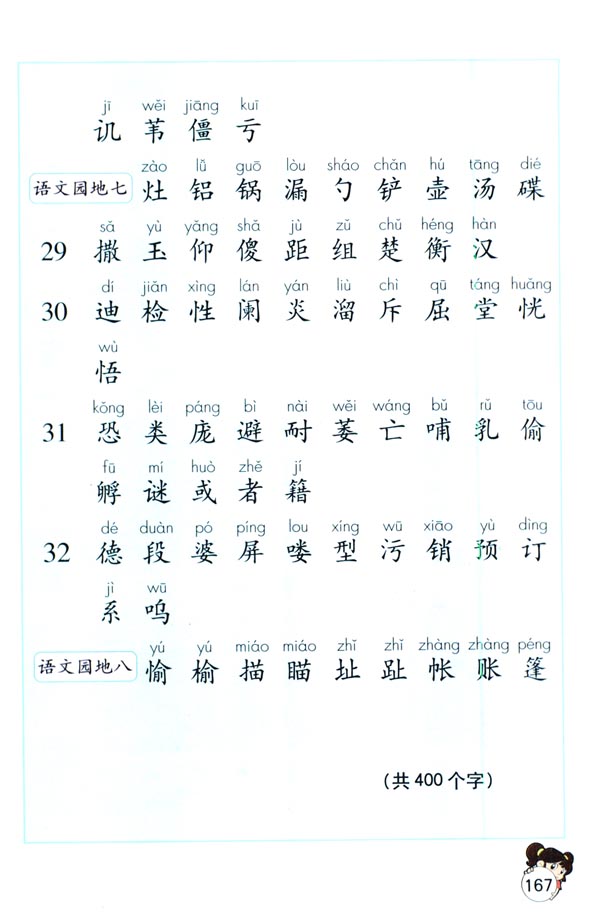 jī wěi jiāng kuī
讥 苇 僵 亏
zào lǚ guō lòu sháo chǎn hú tāng dié
语文园地七 灶 铝 锅 漏 勺 铲 壶 汤 碟
sǎ yù yǎng shǎ jù zǔ chǔ héng hàn
29 撒 玉 仰 傻 距 组 楚 衡 汉
dí jiǎn xìng lán yán liù chì qū táng huǎng
30 迪 检 性 阑 炎 溜 斥 屈 堂 恍
wù
悟
kǒng lèi páng bì nài wěi wáng bǔ rǔ tōu
31 恐 类 庞 避 耐 萎 亡 哺 乳 偷
fū mí huò zhě jí
孵 谜 或 者 籍
dé duàn pó píng lou xíng wū xiāo yù dìng
32 德 段 婆 屏 喽 型 污 销 预 订
jì wū
系 呜
yú yú miáo miáo zhǐ zhǐ zhàng zhàng péng
语文园地八 愉 榆 描 瞄 址 趾 帐 账 篷
（共400个字）
167